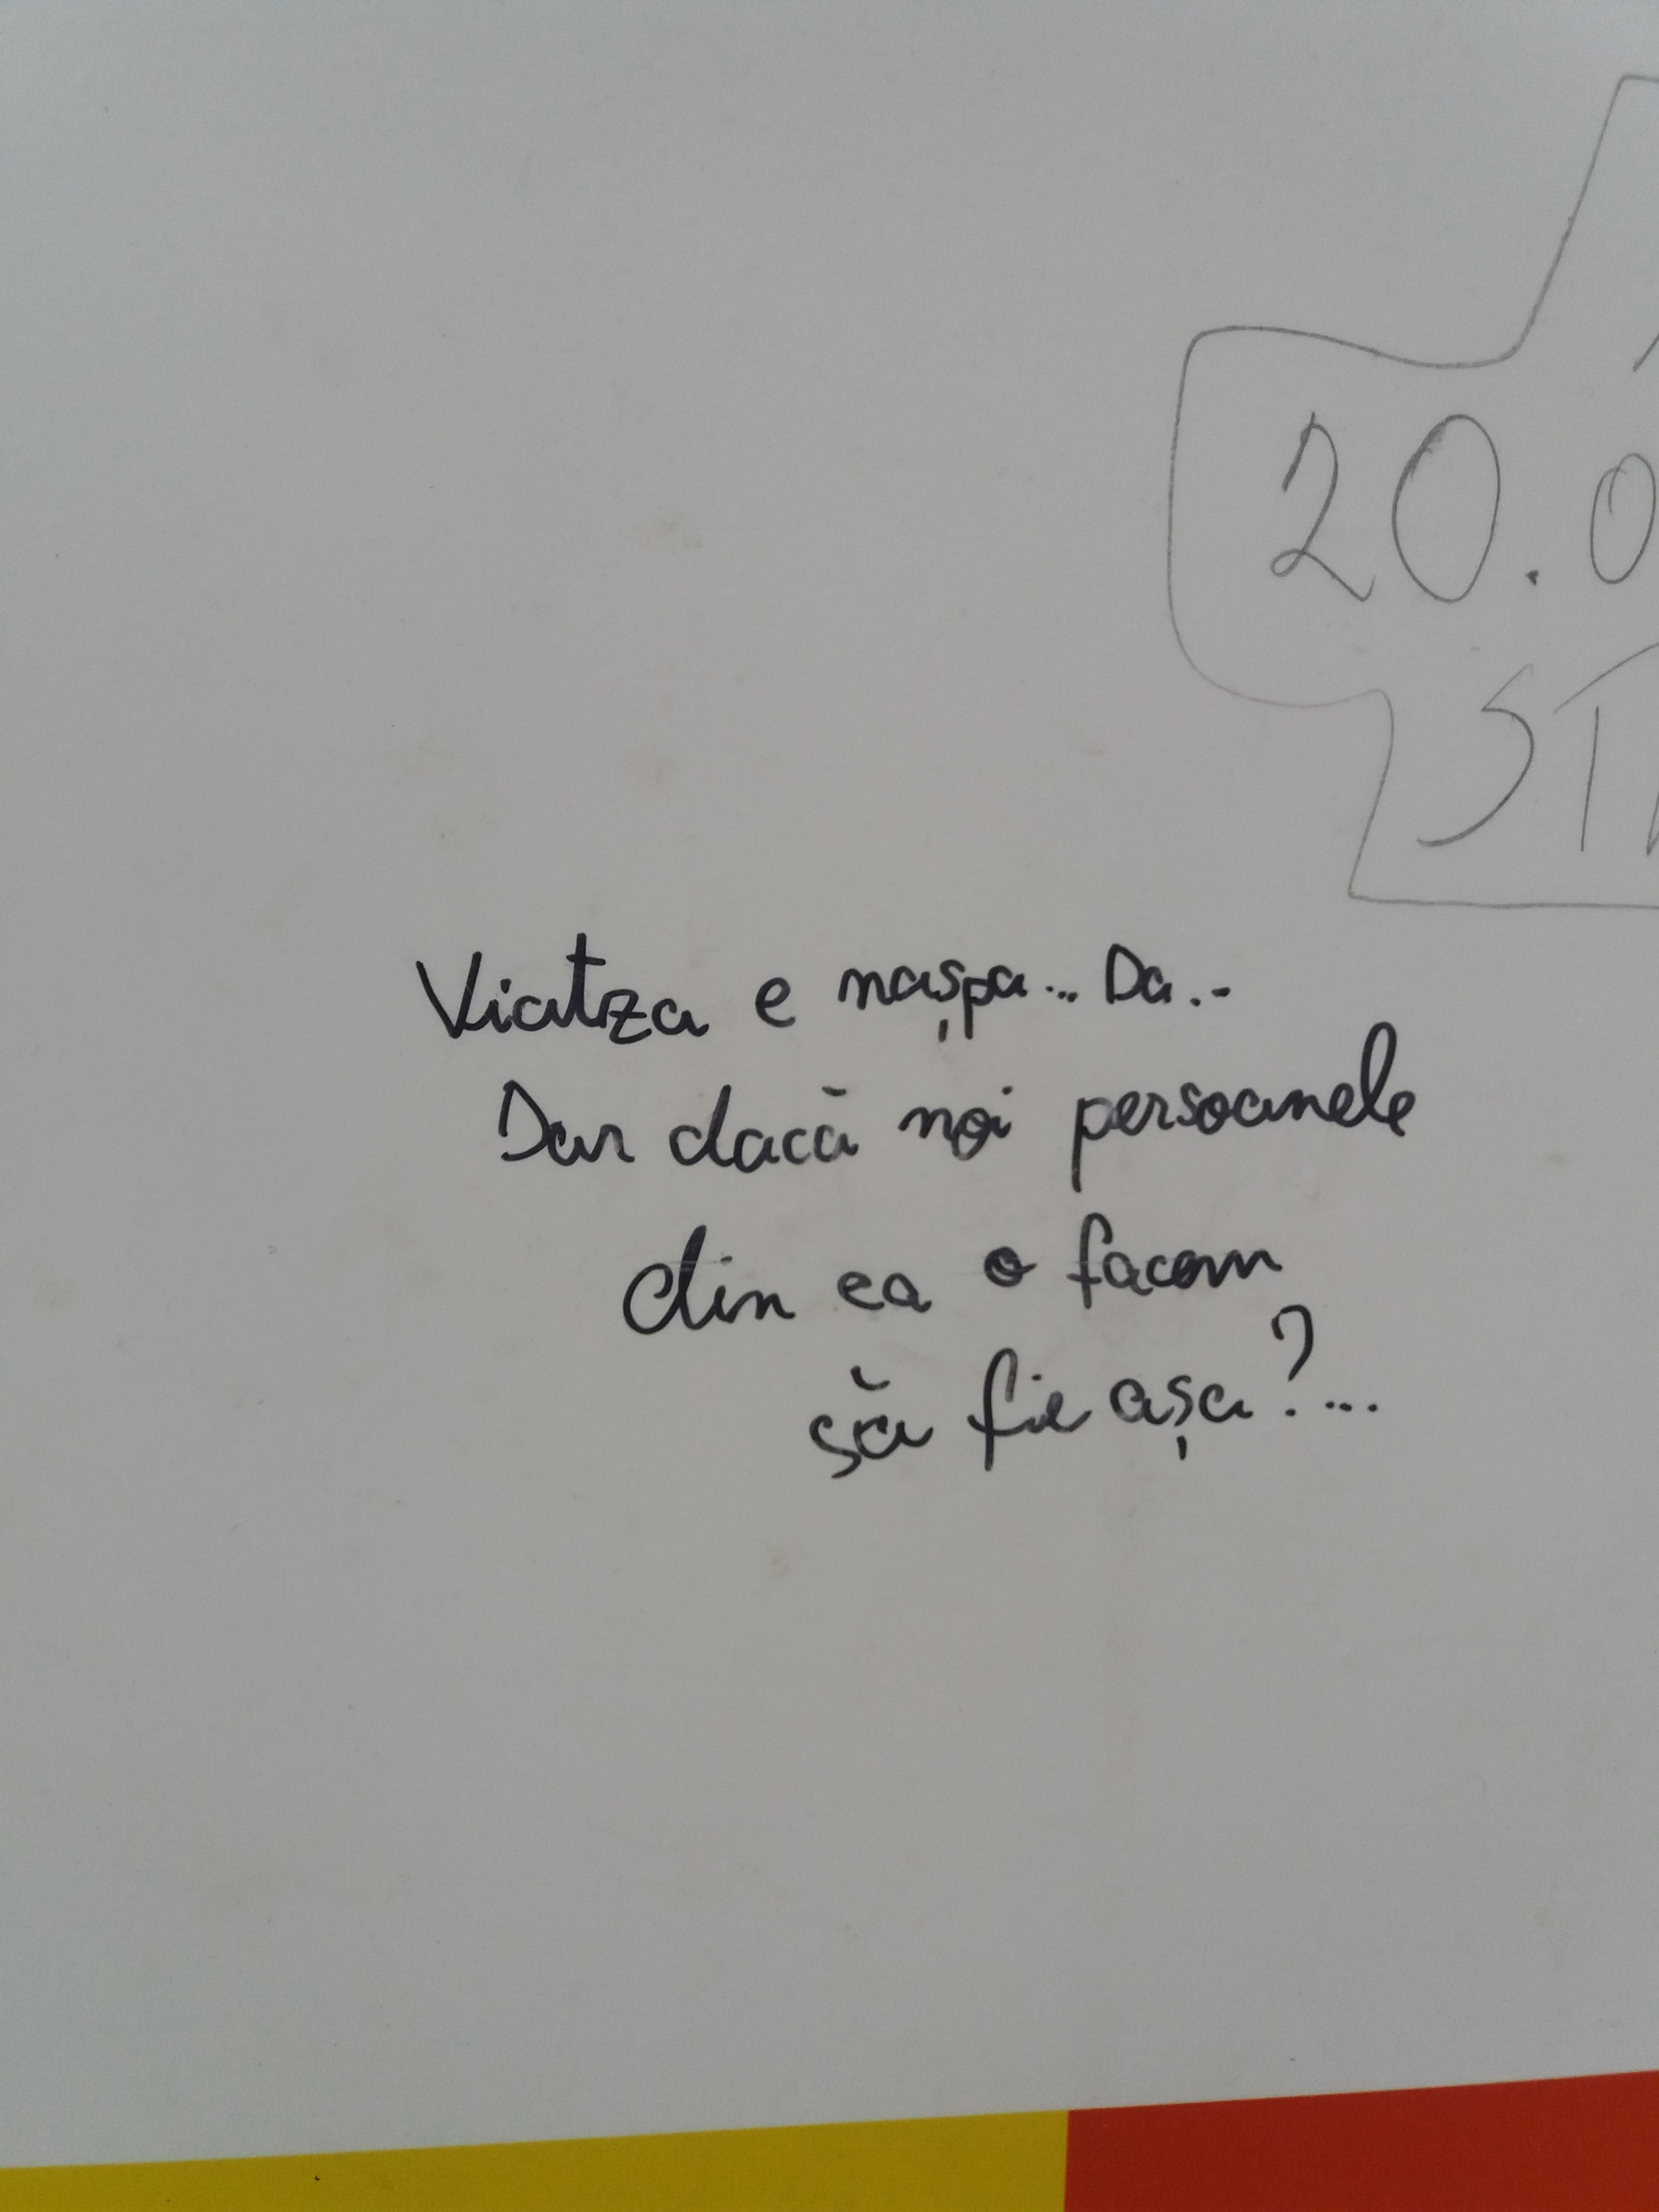 20.0
ST
Viatza e mașpa... Da..
Dar dacă noi persoanele
din ea o facem
să fie așa?...